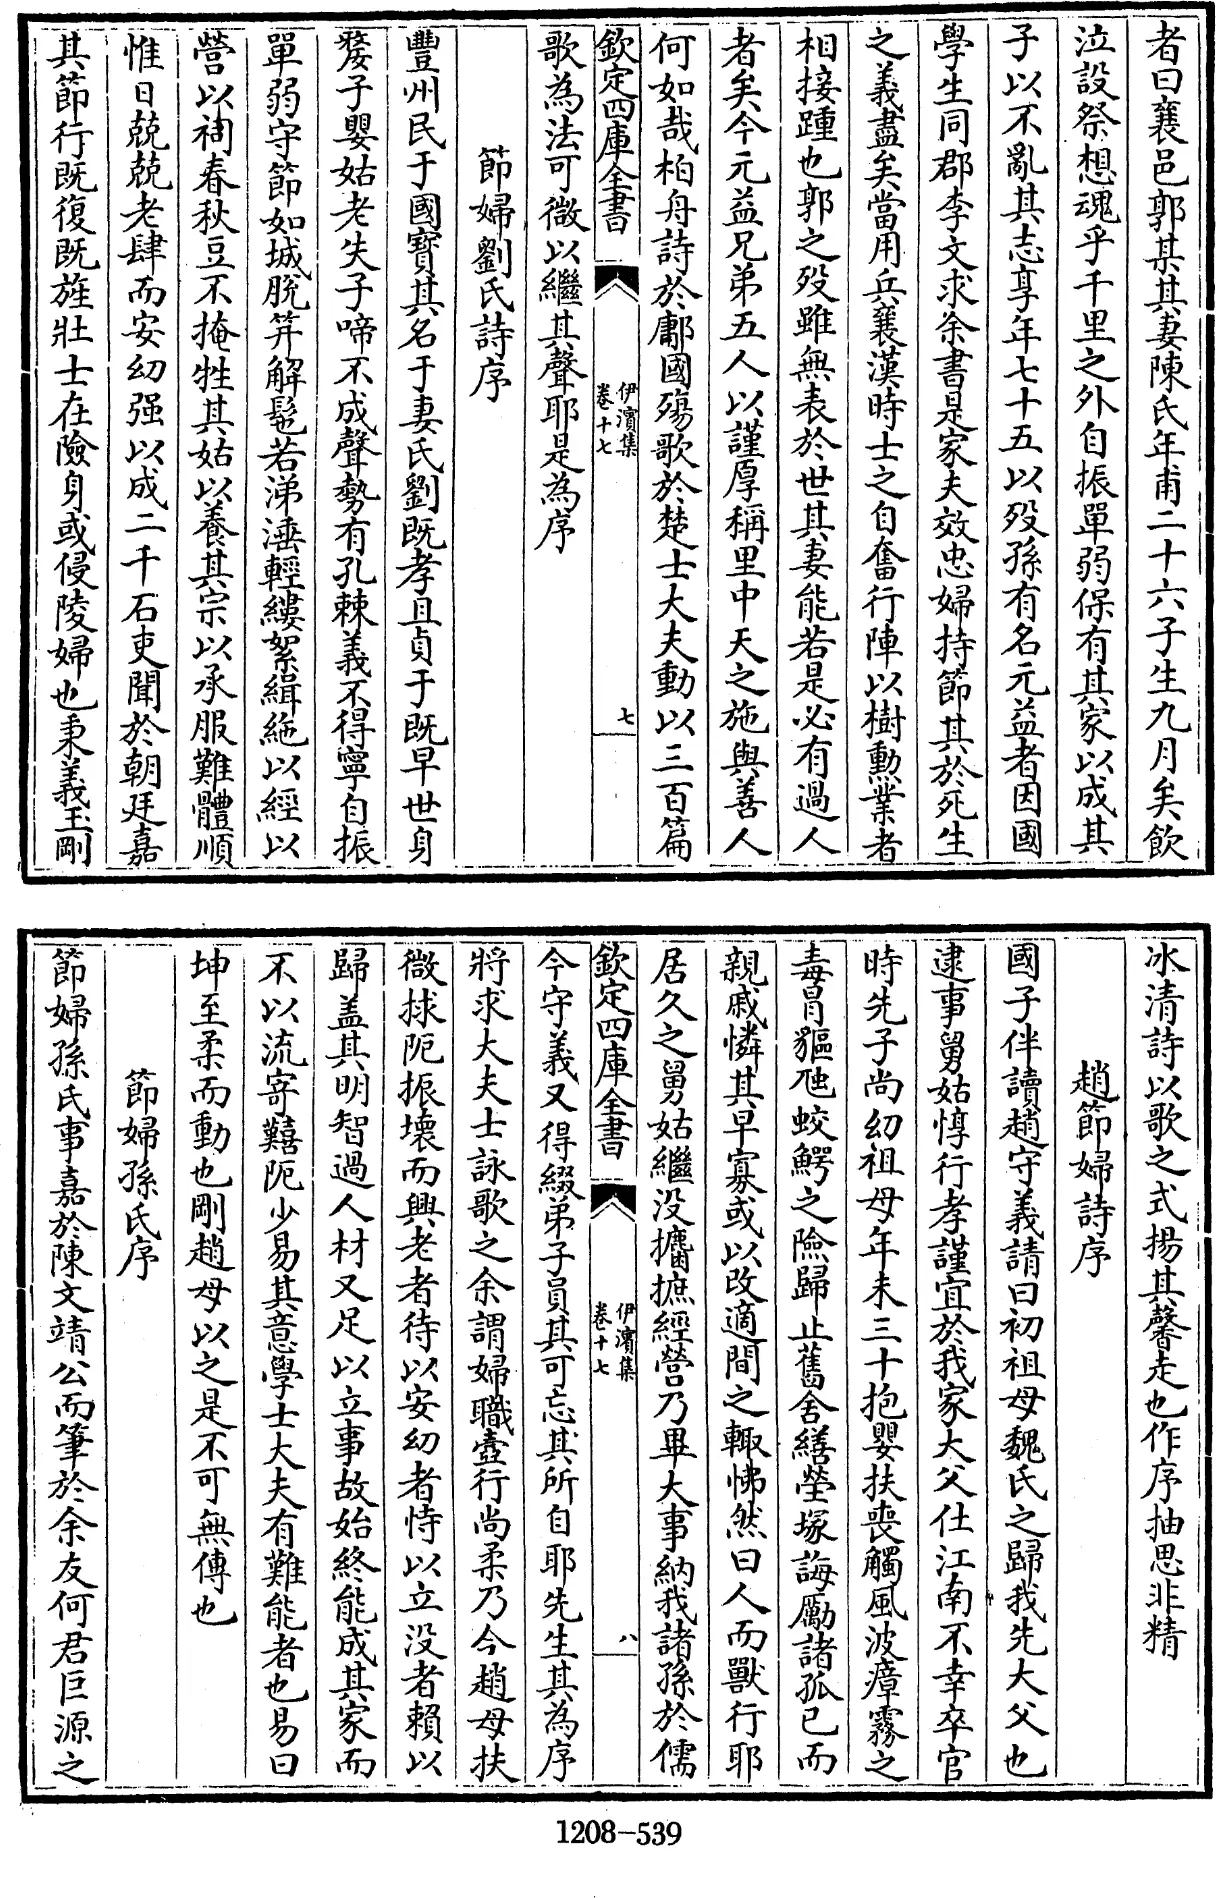 者曰襄邑郭某其妻陳氏年甫二十六子生九月矣飲
泣設祭想魂乎千里之外自振單弱保有其家以成其
子以不亂其志享年七十五以歿孫有名元益者因國
學生同郡李文求余書是家夫效忠婦持節其於死生
之義盡矣當用兵襄漢時士之自奮行陣以樹勲業者
相接踵也郭之歿雖無表於世其妻能若是必有過人
者矣今元益兄弟五人以謹厚稱里中天之施與善人
何如哉柏舟詩於鄘國殤歌於楚士大夫動以三百篇
欽定四庫全書
伊濱集
卷十七
七
歌為法可微以繼其聲耶是為序
節婦劉氏詩序
豐州民于國寶其名于妻氏劉既孝且貞于既早世身
嫠子嬰姑老失子啼不成聲勢有孔棘義不得寧自振
單弱守節如城脫笄解髢若涕洟輕縷絮緝絁以經以
營以祠春秋豆不掩牲其姑以養其宗以承服難體順
惟日兢兢老肆而安幼强以成二千石吏聞於朝廷嘉
其節行既復既旌壯士在險身或侵陵婦也秉義玉剛
冰清詩以歌之式揚其馨走也作序抽思非精
趙節婦詩序
國子伴讀趙守義請曰初祖母魏氏之歸我先大父也
逮事舅姑惇行孝謹宜於我家大父仕江南不幸卒官
時先子尚幼祖母年未三十抱嬰扶喪觸風波瘴霧之
毒冒貙虺蛟鰐之險歸止舊舍繕塋塚誨勵諸孤已而
親戚憐其早寡或以改適間之輙怫然曰人而獸行耶
居久之舅姑繼没攟摭經營乃畢大事納我諸孫於儒
欽定四庫全書
伊濱集
卷十七
八
今守義又得綴弟子員其可忘其所自耶先生其為序
將求大夫士詠歌之余謂婦職壼行尚柔乃今趙母扶
微捄阨振壞而興老者待以安幼者恃以立没者賴以
歸盖其明智過人材又足以立事故始終能成其家而
不以流寄囏阨少易其意學士大夫有難能者也易曰
坤至柔而動也剛趙母以之是不可無傳也
節婦孫氏序
節婦孫氏事嘉於陳文靖公而筆於余友何君巨源之
1208-539